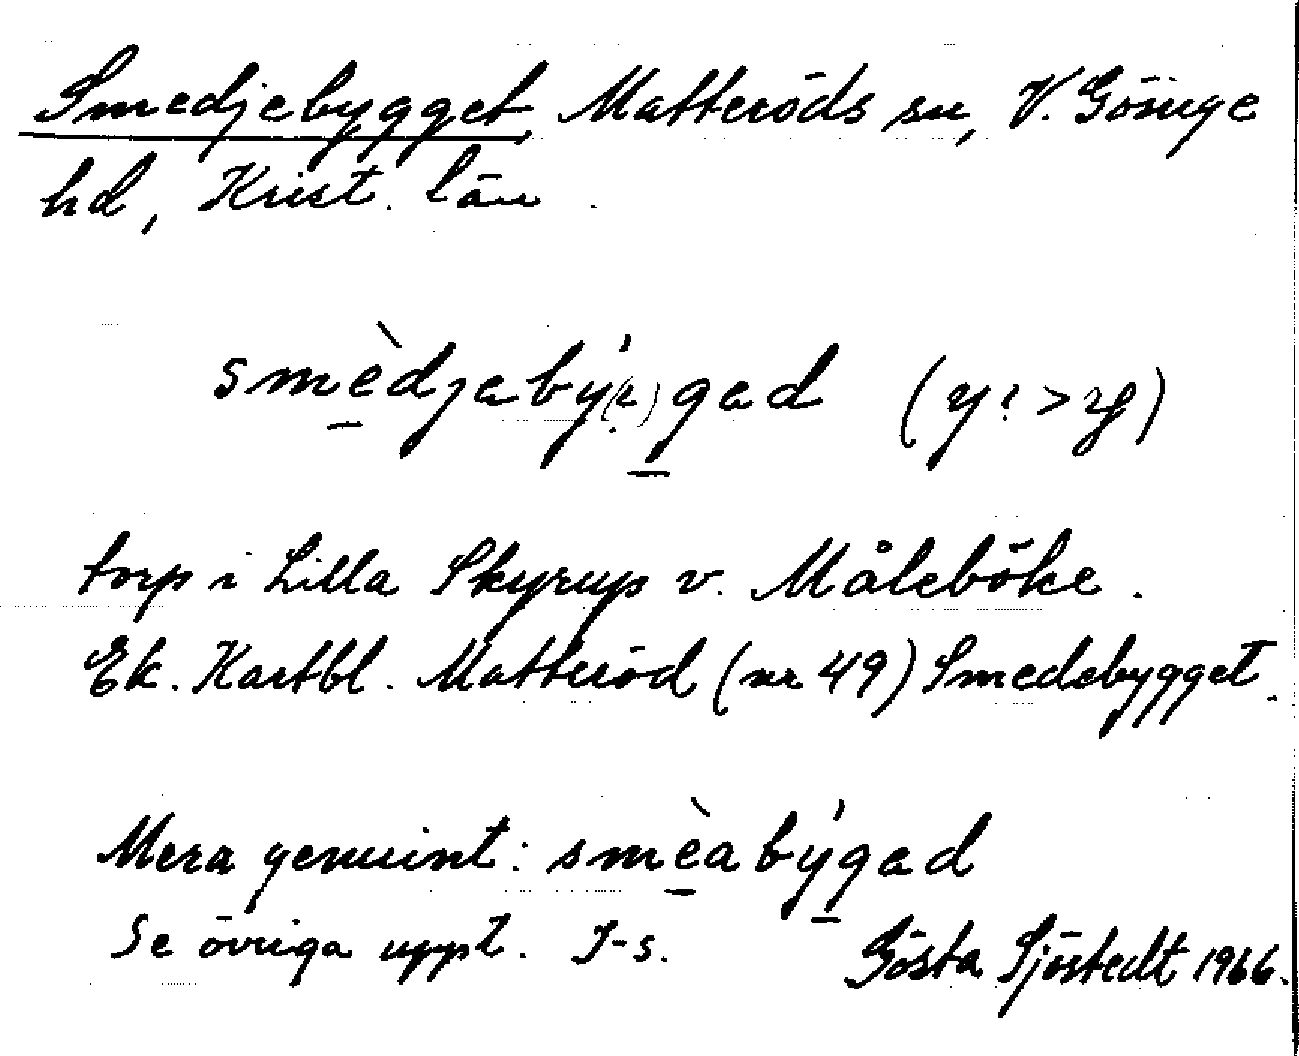 Smedjebygget, Matteröds sn, V. Göinge
hd, Krist. län.
smèdjabý(ː)gad (yː>y)
torp i Lilla Skyrup v. Måleböke.
Ek. Kartbl. Matteröd (nr 49) Smedebygget.
Mera genuint: smèabýgad
Se övriga uppt. J-s. Gösta Sjöstedt 1966.